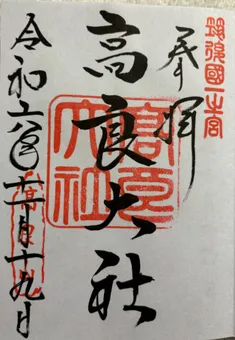 筑後國一之宮
奉拝
高良大社
高良大社
令和六年十一月十九日